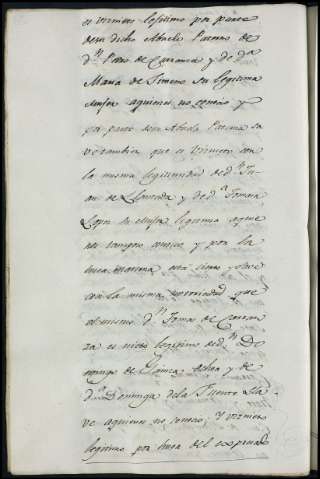 es viznieto lexitimo por parte
de su dicho Abuelo Paterno de
d.n Pedro de Carranza y de d.a
Maria de Ximeno su legitima
Muger a quienes no conocio y
por parte de su Abuela Paterna sa
ve tambien que es viznieto con
la misma legitimidad de d.n Ju
an de Llanceda y de d.a Tomasa
Lopez su muger legitima a que
nes tampoco conocio, y por la
linea Materna
con la misma notoriedad que
el mismo d.n Tomas de Carran
za es nieto legitimo de d.n Do
mingo de y de
d.a Dominga de la Puente Lla
ve a quienes no conocio; Y viznieto
legitimo por linea del expresado